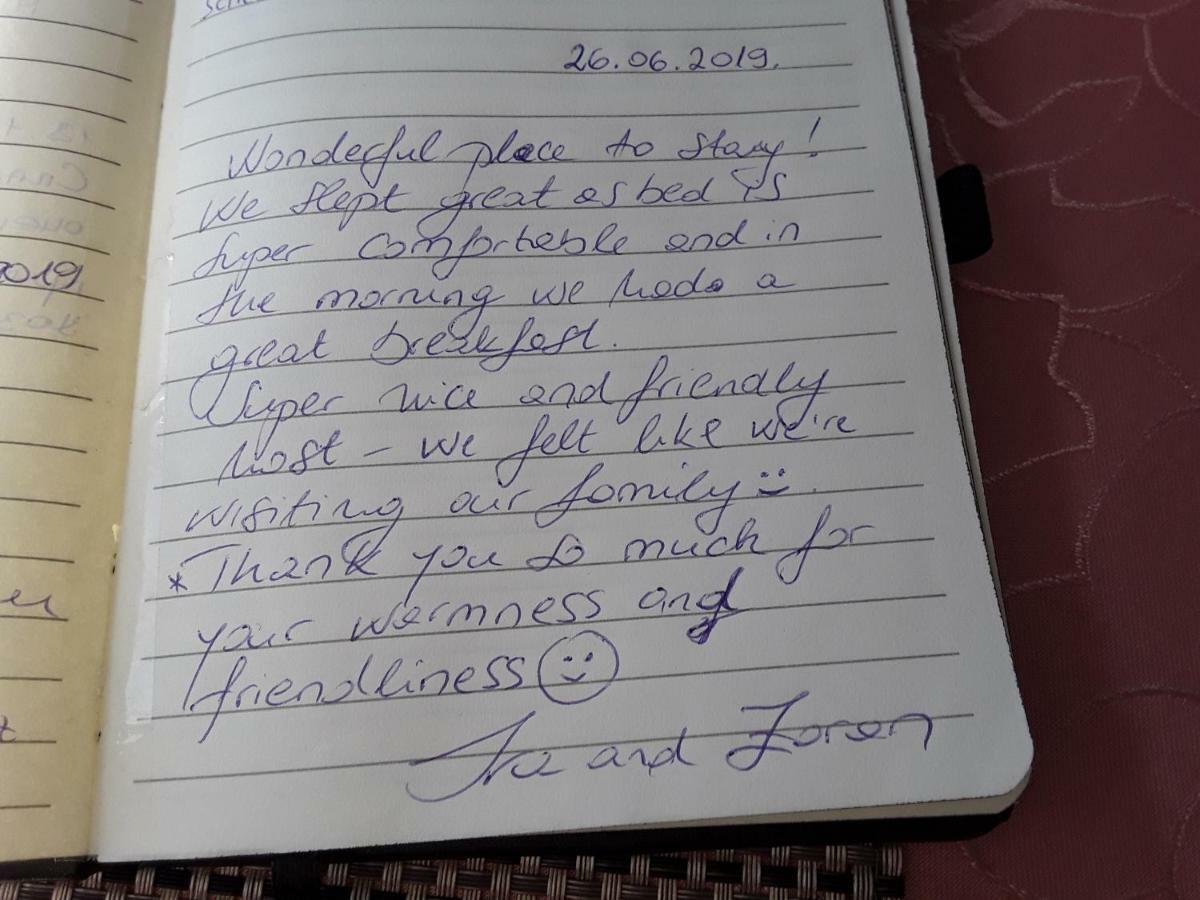 26.06.2019.
Wonderful place to stay!
We slept great as bed is
super comfortable and in
the morning we had a
great breakfast.
Super nice and friendly
host - we felt like we're
visiting our family :)
*Thank you so much for
your warmness and
friendliness ☺
and Zoran
2019